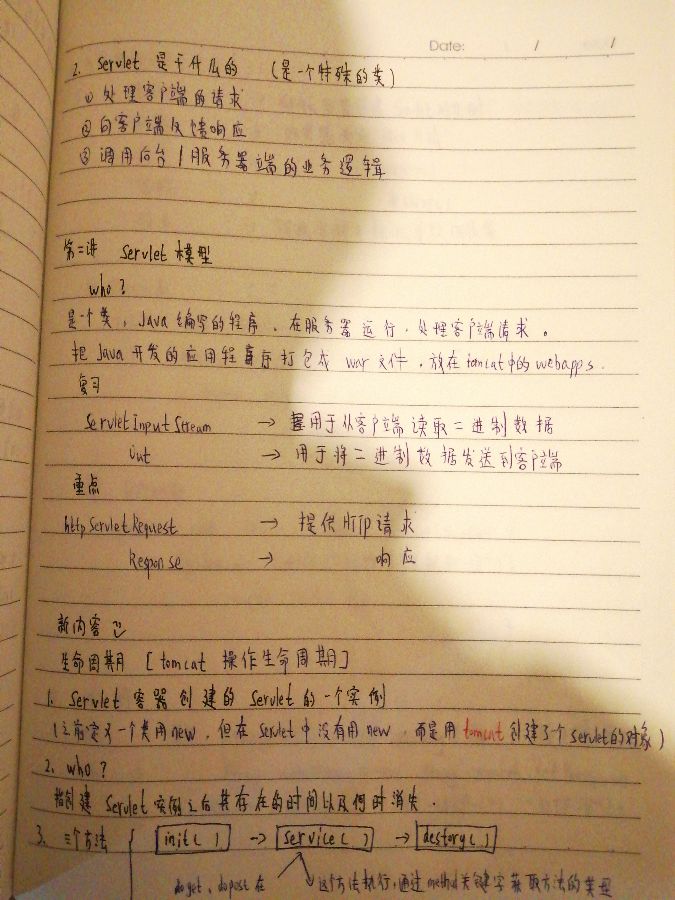 Date: / /
2. Servlet 是干什么的 (是一个特殊的类)
① 处理客户端的请求
② 向客户端反馈响应
③ 调用后台/服务器端的业务逻辑
第二讲 Servlet 模型
who?
是一个类,Java编写的程序,在服务器运行,处理客户端请求。
把Java开发的应用程序打包成 war文件,放在tomcat中的webapps.
复习
ServletInputStream → 用于从客户端读取二进制数据
Out → 用于将二进制数据发送到客户端
重点
http ServletRequest → 提供HTTP请求
Response → 响应
新内容
生命周期 [tomcat 操作生命周期]
1. Servlet 容器创建的 Servlet 的一个实例
(之前定义一个类用new,但在Servlet中没有用new,而是用tomcat创建了个Servlet的对象)
2. who?
指创建 Servlet 实例之后其存在的时间以及何时消失.
3. 三个方法 { init( ) → service( ) → destory( )
doget、dopost在 这个方法执行,通过method关键字获取方法的类型